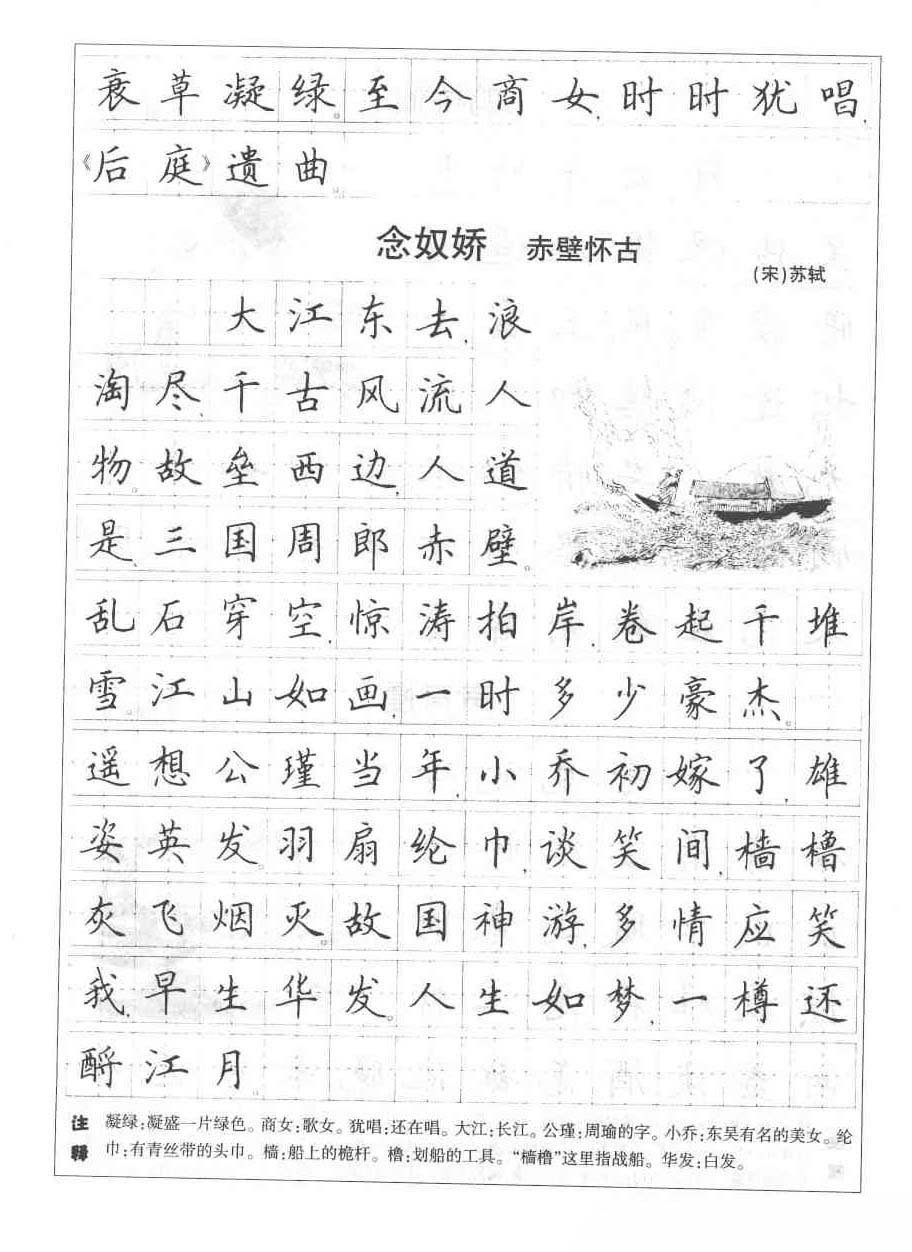 衰草凝绿。至今商女,时时犹唱,
《后庭》遗曲。
念奴娇 赤壁怀古
(宋)苏轼
大江东去,浪
淘尽,千古风流人
物。故垒西边,人道
是,三国周郎赤壁。
乱石穿空,惊涛拍岸,卷起千堆
雪。江山如画,一时多少豪杰。
遥想公瑾当年,小乔初嫁了,雄
姿英发。羽扇纶巾,谈笑间,樯橹
灰飞烟灭。故国神游,多情应笑
我,早生华发。人生如梦,一樽还
酹江月
注释 凝绿:凝盛一片绿色。商女:歌女。犹唱:还在唱。大江:长江。公瑾:周瑜的字。小乔:东吴有名的美女。纶
巾:有青丝带的头巾。樯:船上的桅杆。橹:划船的工具。“樯橹”这里指战船。华发:白发。